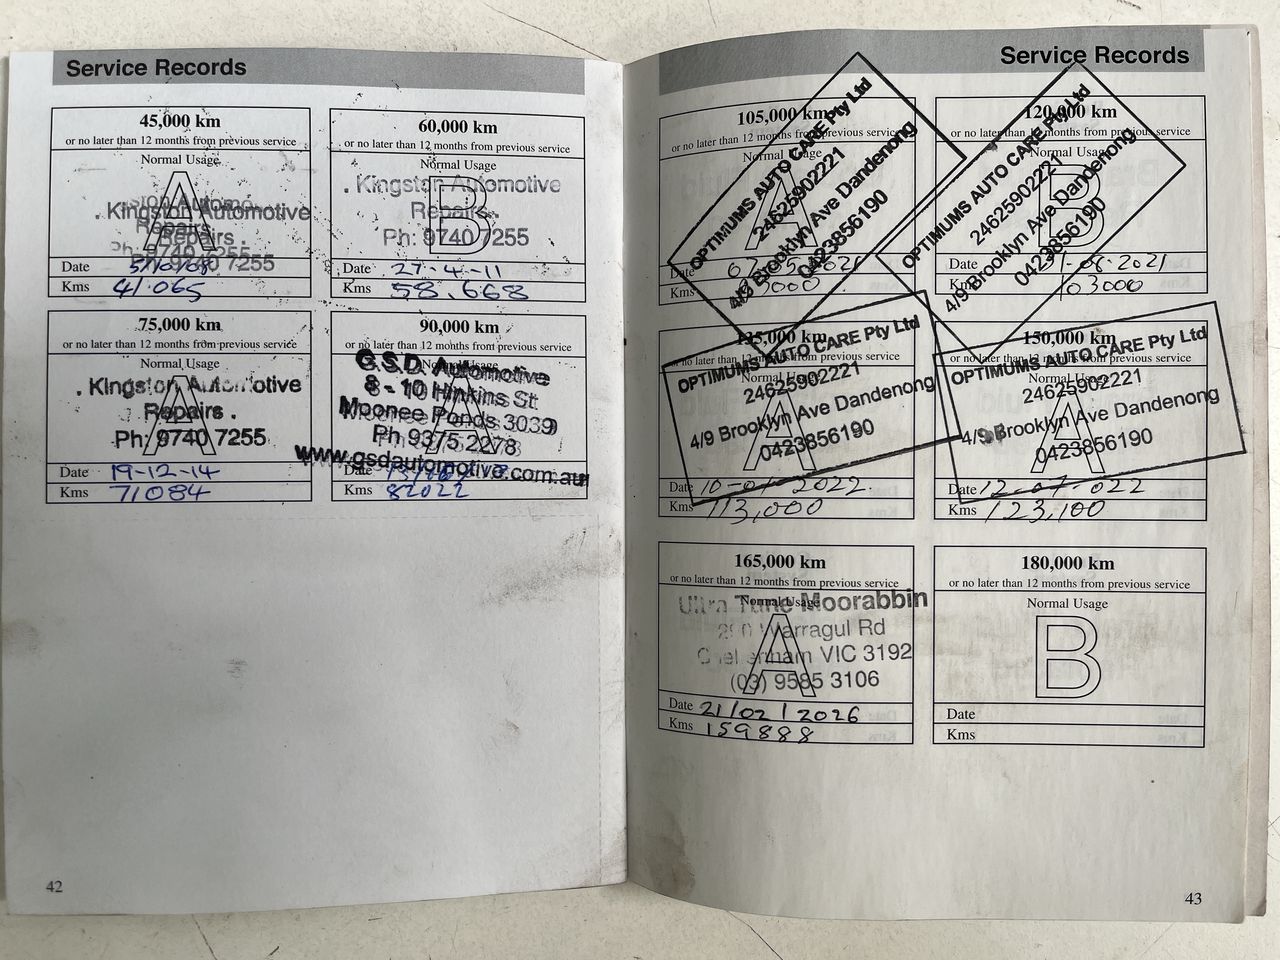 Service Records
45,000 km
or no later than 12 months from previous service
Normal Usage
A
. Kingston Automotive
Repairs
Ph: 9740 7255
Date 5/10/08
Kms 41.065
60,000 km
or no later than 12 months from previous service
Normal Usage
B
. Kingston Automotive
Repairs.
Ph: 9740 7255
Date 27-4-11
Kms 58.668
75,000 km
or no later than 12 months from previous service
Normal Usage
A
. Kingston Automotive
Repairs .
Ph: 9740 7255
Date 19-12-14
Kms 71084
90,000 km
or no later than 12 months from previous service
Normal Usage
A
G.S.D. Automotive
8 - 10 Hinkins St
Moonee Ponds 3039
Ph 9375 2278
www.gsdautomotive.com.au
Date
Kms 82022
42
Service Records
105,000 km
or no later than 12 months from previous service
Normal Usage
A
OPTIMUMS AUTO CARE Pty Ltd
24625902221
4/9 Brooklyn Ave Dandenong
0423856190
Date
Kms
120,000 km
or no later than 12 months from previous service
Normal Usage
B
OPTIMUMS AUTO CARE Pty Ltd
24625902221
4/9 Brooklyn Ave Dandenong
0423856190
Date
Kms 103000
135,000 km
or no later than 12 months from previous service
Normal Usage
A
OPTIMUMS AUTO CARE Pty Ltd
24625902221
4/9 Brooklyn Ave Dandenong
0423856190
Date 10-01-2022.
Kms 113,000
150,000 km
or no later than 12 months from previous service
Normal Usage
A
OPTIMUMS AUTO CARE Pty Ltd
24625902221
4/9 Brooklyn Ave Dandenong
0423856190
Date 12-07-022
Kms 123,100
165,000 km
or no later than 12 months from previous service
Normal Usage
A
Ultra Tune Moorabbin
Warragul Rd
Cheltenham VIC 3192
(03) 9585 3106
Date 21/02/2026
Kms 159888
180,000 km
or no later than 12 months from previous service
Normal Usage
B
Date
Kms
43